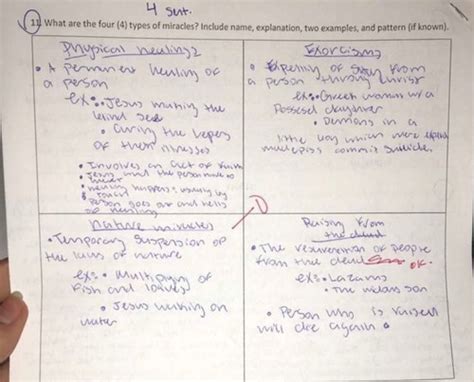 4 sent.
11. What are the four (4) types of miracles? Include name, explanation, two examples, and pattern (if known).
Physical healings
• A permanent healing of
a person
ex: • Jesus making the
blind see
• curing the lepers
of their illnesses
• Involves an act of faith
• Jesus and the person
• healing happens usually by
touch
• person goes and tells
of healing
Exorcisms
• Expelling of from
a person through
ex: • Greek woman w/ a
Possesed daughter
• Demons in a
little boy which were
commit suicide.
Nature miracles
• Temporary suspension of
the laws of nature
exs: • Multiplying of
fish and loaves
• Jesus walking on
water
Raising from
the dead
• The resurrection of people
from the dead OK.
exs: • Lazarus
• The widows son
• Person who is raised
will die again.